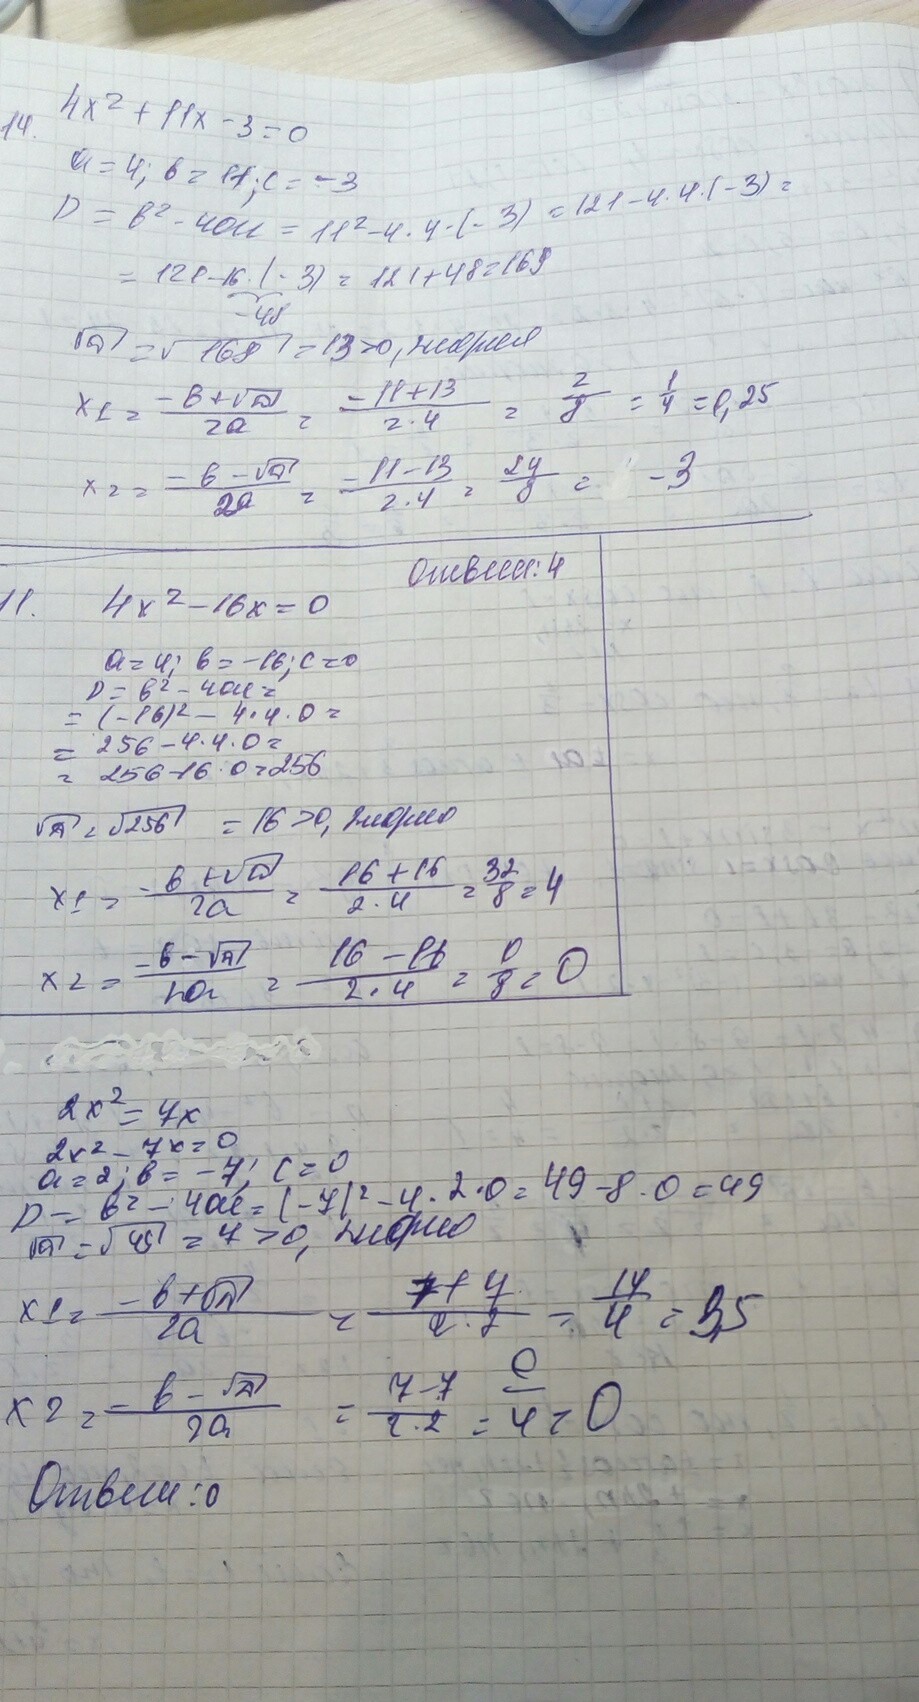 14. 4x² + 11x - 3 = 0
a = 4; b = 11; c = -3
D = b² - 4ac = 11² - 4·4·(-3) = 121 - 4·4·(-3) =
= 121 - 16·(-3) = 121 + 48 = 169
-48
√D = √169 = 13 > 0, 2 корня
x1 = (-b + √D)/2a = (-11 + 13)/(2·4) = 2/8 = 1/4 = 0,25
x2 = (-b - √D)/2a = (-11 - 13)/(2·4) = 24/8 = -3
Ответ: 4
11. 4x² - 16x = 0
a = 4; b = -16; c = 0
D = b² - 4ac =
= (-16)² - 4·4·0 =
= 256 - 4·4·0 =
= 256 - 16·0 = 256
√D = √256 = 16 > 0, 2 корня
x1 = (-b + √D)/2a = (16 + 16)/(2·4) = 32/8 = 4
x2 = (-b - √D)/2a = (16 - 16)/(2·4) = 0/8 = 0
2x² = 7x
2x² - 7x = 0
a = 2; b = -7; c = 0
D = b² - 4ac = (-7)² - 4·2·0 = 49 - 8·0 = 49
√D = √49 = 7 > 0, 2 корня
x1 = (-b + √D)/2a = (7 + 7)/(2·2) = 14/4 = 3,5
x2 = (-b - √D)/2a = (7 - 7)/(2·2) = 0/4 = 0
Ответ: 0